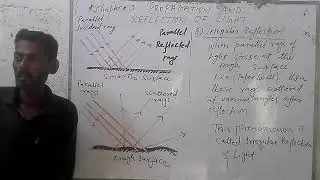 Chapter #13 PROPAGATION AND
REFLECTION OF LIGHT
Parallel
Incident rays
Parallel
Reflected
rays
Smooth Surface
Parallel
rays
Scattered
rays
rough Surface
Irregular Reflection
When parallel rays of
light strike at the
rough Surface
then
these rays scattered
at various angles after
reflection
This phenomenon is
Called Irregular Reflection
of Light